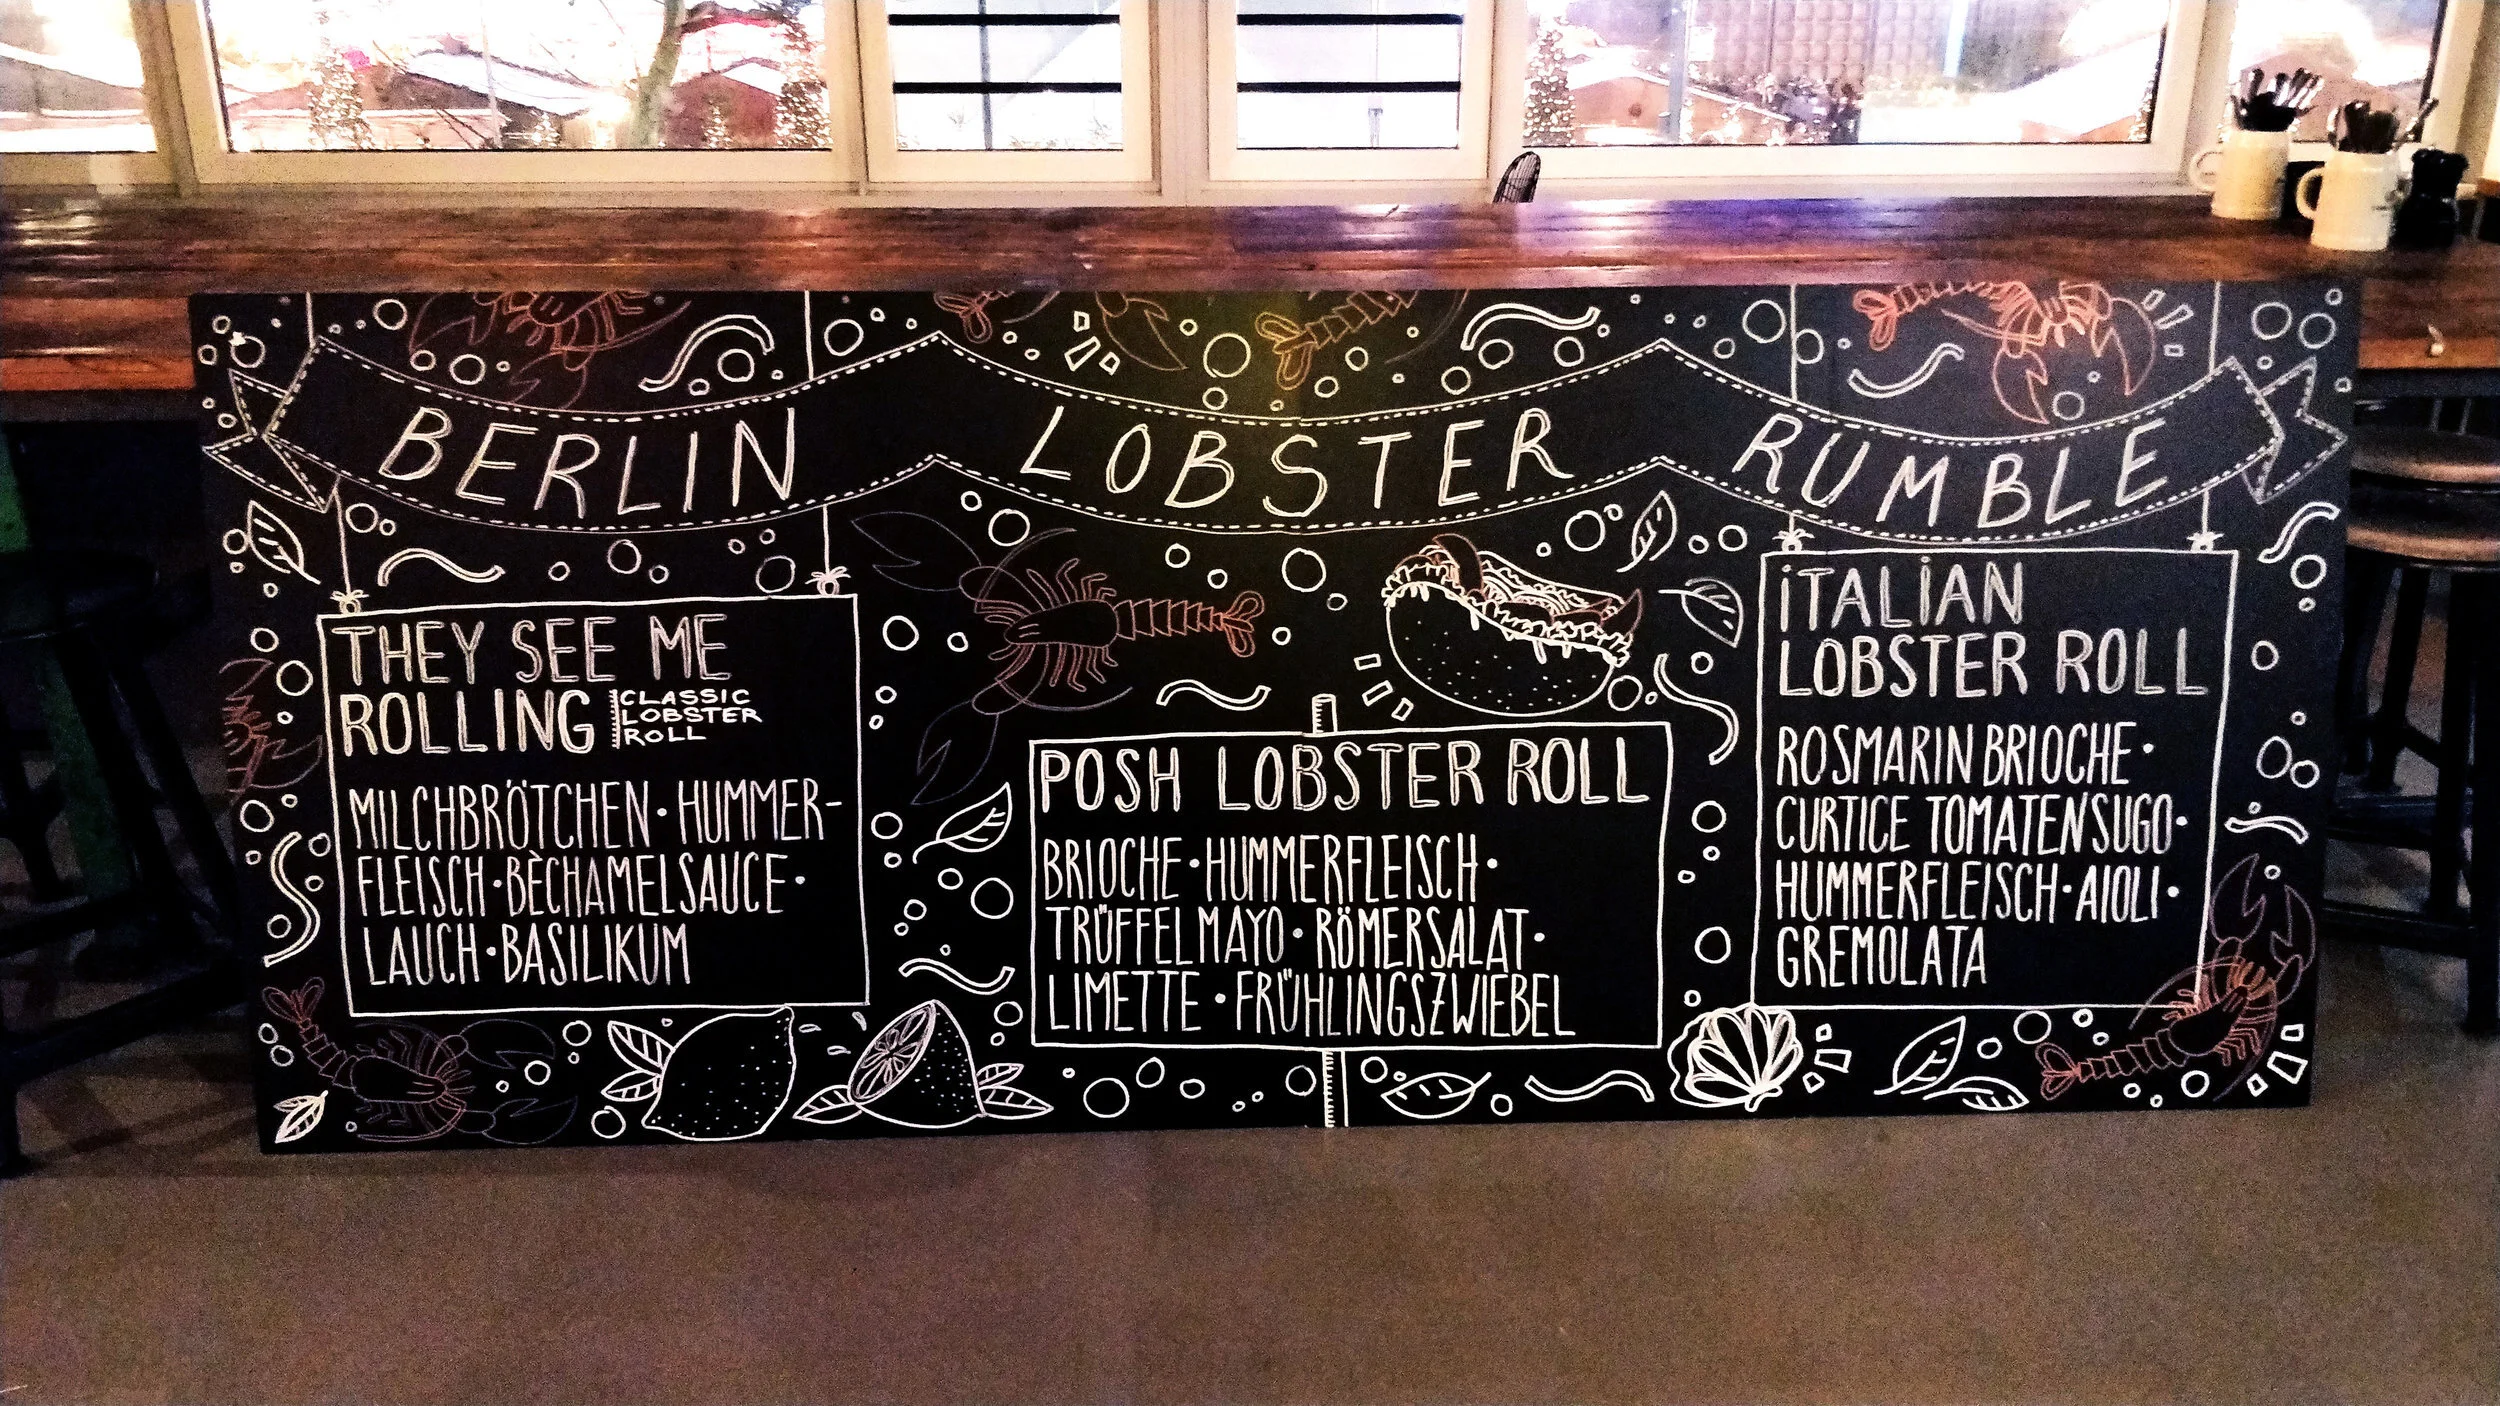 BERLIN LOBSTER RUMBLE
THEY SEE ME
ROLLING
CLASSIC
LOBSTER
ROLL
MILCHBRÖTCHEN • HUMMER-
FLEISCH • BÈCHAMELSAUCE •
LAUCH • BASILIKUM
POSH LOBSTER ROLL
BRIOCHE • HUMMERFLEISCH •
TRÜFFELMAYO • RÖMERSALAT •
LIMETTE • FRÜHLINGSZWIEBEL
iTALiAN
LOBSTER ROLL
ROSMARINBRIOCHE •
CURTICE TOMATENSUGO •
HUMMERFLEISCH • AIOLI •
GREMOLATA